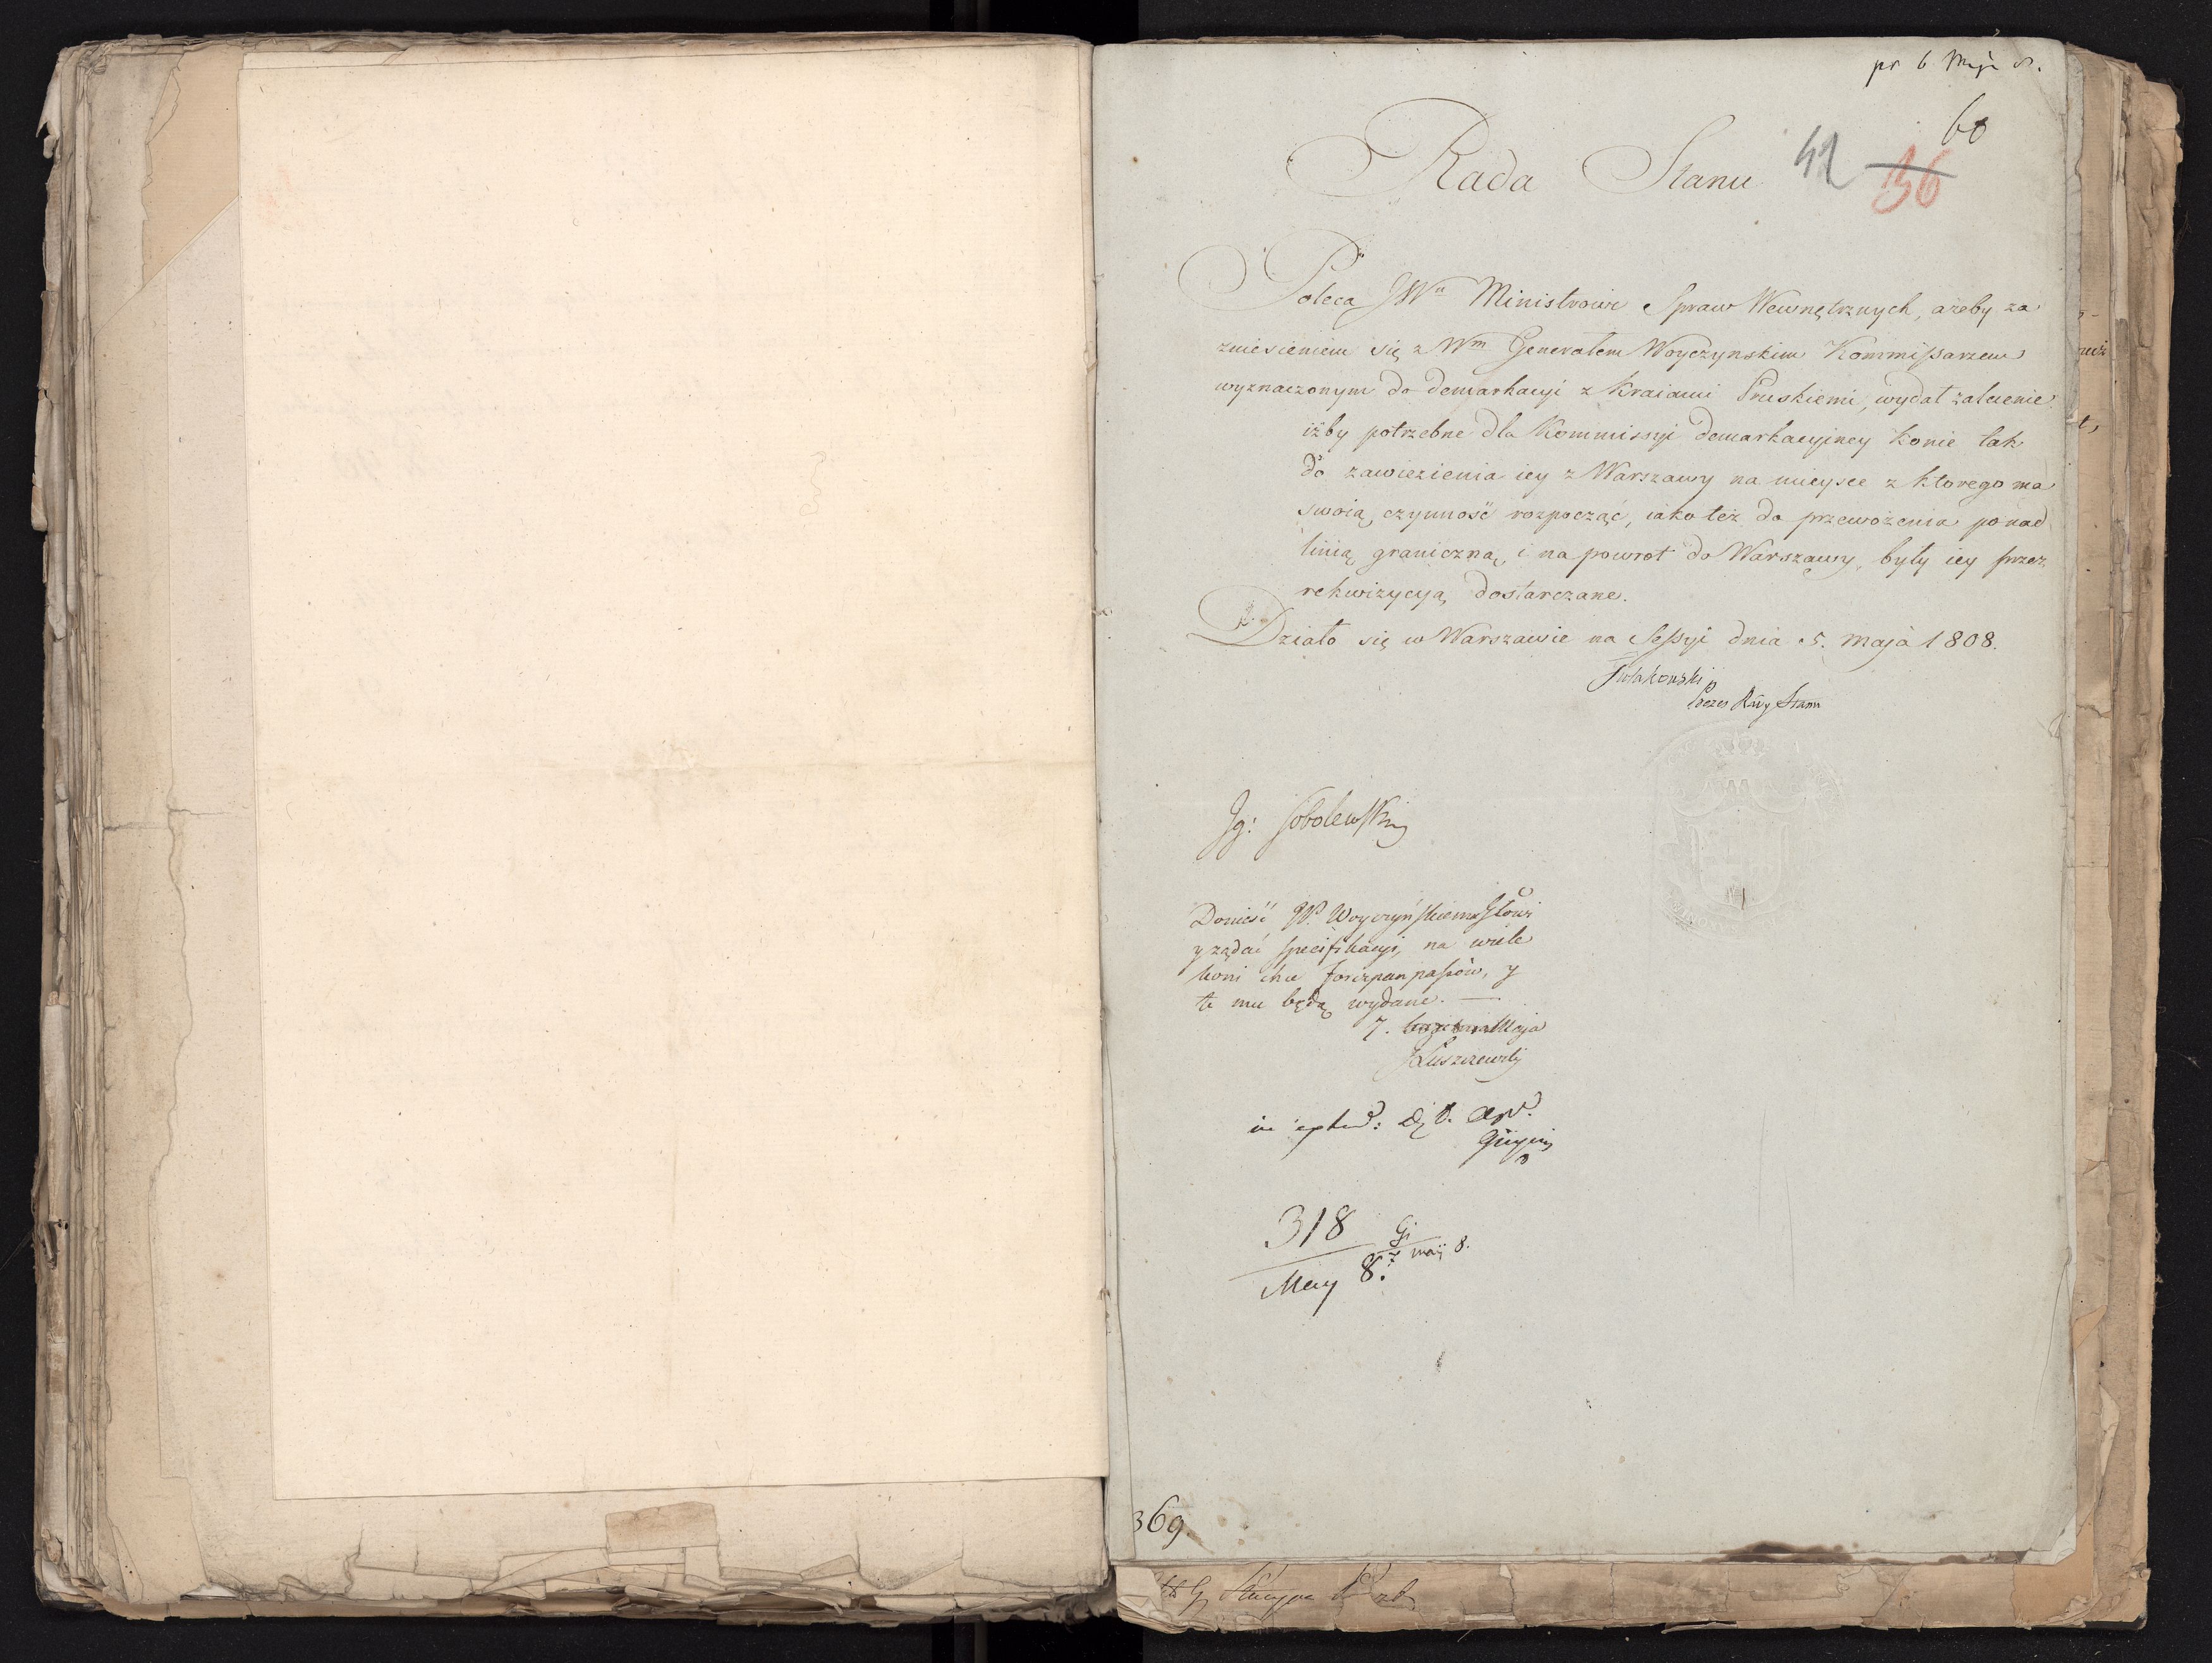 pr 6 Maja 8.
60
Rada Stanu 42 36
Poleca JWu Ministrowi Spraw Wewnętrznych, ażeby za
zniesieniem się z Wm Generałem Woyczynskim Kommissarzem
wyznaczonym do demarkacyi z Kraiami Pruskiemi, wydał zalecenie
iżby potrzebne dla Kommissyi demarkacyiney konie tak
do zawiezienia iey z Warszawy na mieysce z ktorego ma
swoią czynność rozpocząć, iako też do przewożenia ponad
linią graniczną i na powrot do Warszawy, były iey przez
rekwizycyą dostarczane.
Działo się w Warszawie na Sessyi dnia 5. Maja 1808.
Prezes Rady Stanu
Jg: Sobolewski
Donieść Woyczyńskiemu
y żądać specifikacyi, na wiele
koni chce forszpanpassów, y
te mu będą wydane. —
7. Maja
Łuszczewski
318
May 8.
7 maij 8.
369